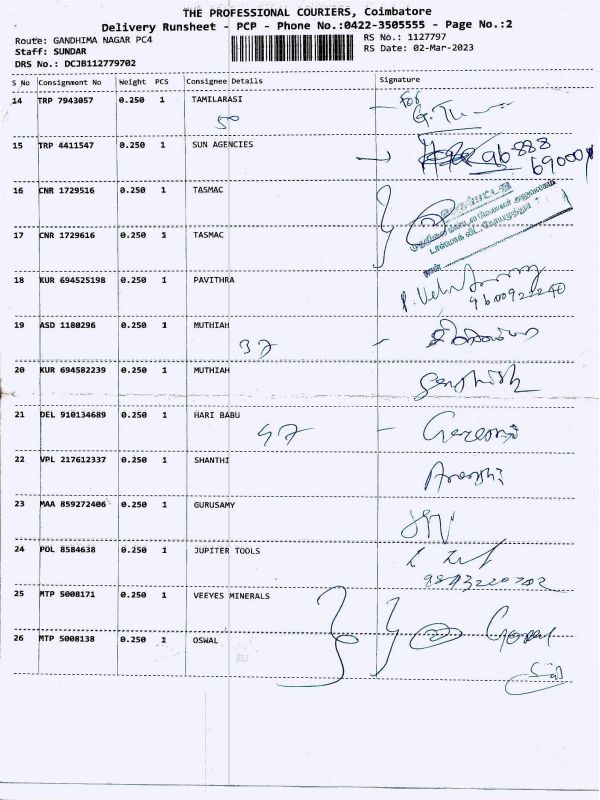 THE PROFESSIONAL COURIERS, Coimbatore
Delivery Runsheet - PCP - Phone No.:0422-3505555 - Page No.:2
Route: GANDHIMA NAGAR PC4
RS No.: 1127797
Staff: SUNDAR
RS Date: 02-Mar-2023
DRS No.: DCJB112779702
S No Consignment No Weight PCS Consignee Details Signature
14 TRP 7943057 0.250 1 TAMILARASI
For
50
15 TRP 4411547 0.250 1 SUN AGENCIES
16 CNR 1729516 0.250 1 TASMAC
17 CNR 1729616 0.250 1 TASMAC
18 KUR 694525198 0.250 1 PAVITHRA
19 ASD 1180296 0.250 1 MUTHIAH
37
20 KUR 694582239 0.250 1 MUTHIAH
21 DEL 910134689 0.250 1 HARI BABU
47
22 VPL 217612337 0.250 1 SHANTHI
23 MAA 859272406 0.250 1 GURUSAMY
24 POL 8584638 0.250 1 JUPITER TOOLS
25 MTP 5008171 0.250 1 VEEYES MINERALS
26 MTP 5008138 0.250 1 OSWAL